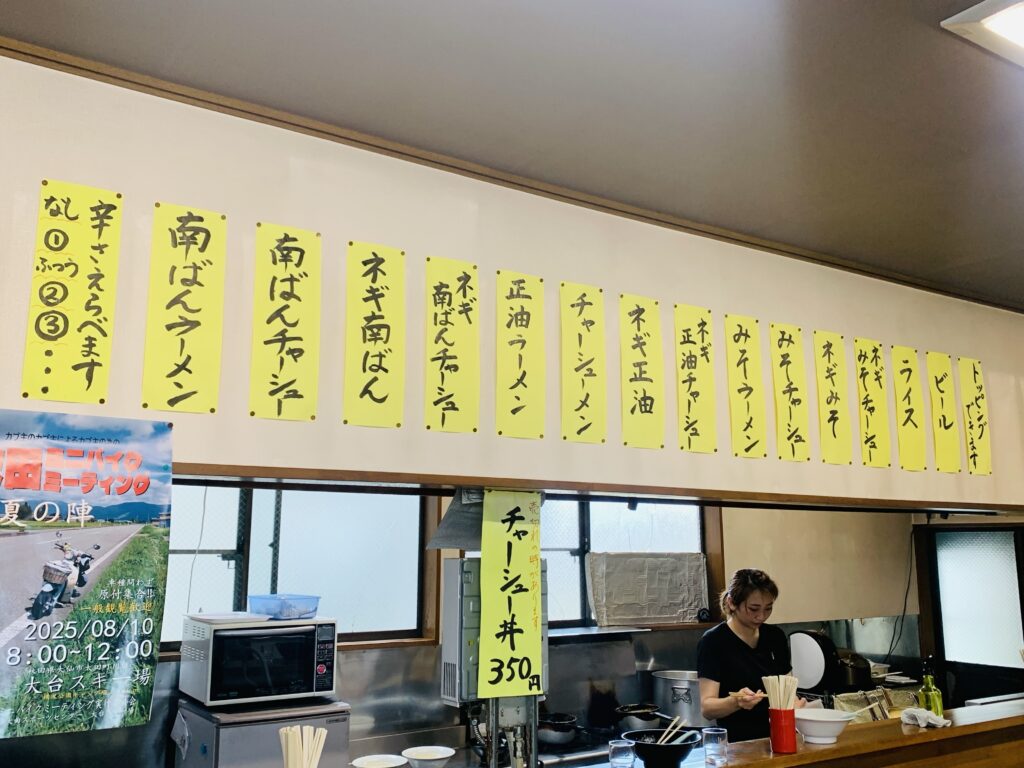 辛さえらべます
なし
①
ふつう
②
③
・・・
南ばんラーメン
南ばんチャーシュー
ネギ南ばん
ネギ
南ばんチャーシュー
正油ラーメン
チャーシューメン
ネギ正油
ネギ
正油チャーシュー
みそラーメン
みそチャーシュー
ネギみそ
ネギ
みそチャーシュー
ライス
ビール
トッピング
できます
売切れの時があります
チャーシュー丼
350円
カブキのカブキによるカブキのための
ミニバイク
ミーティング
夏の陣
車種問わず
原付集合!!
一般観覧歓迎
2025/08/10
8:00~12:00
大台スキー場